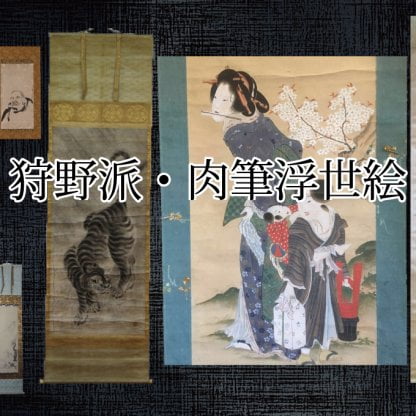 狩野派・肉筆浮世絵